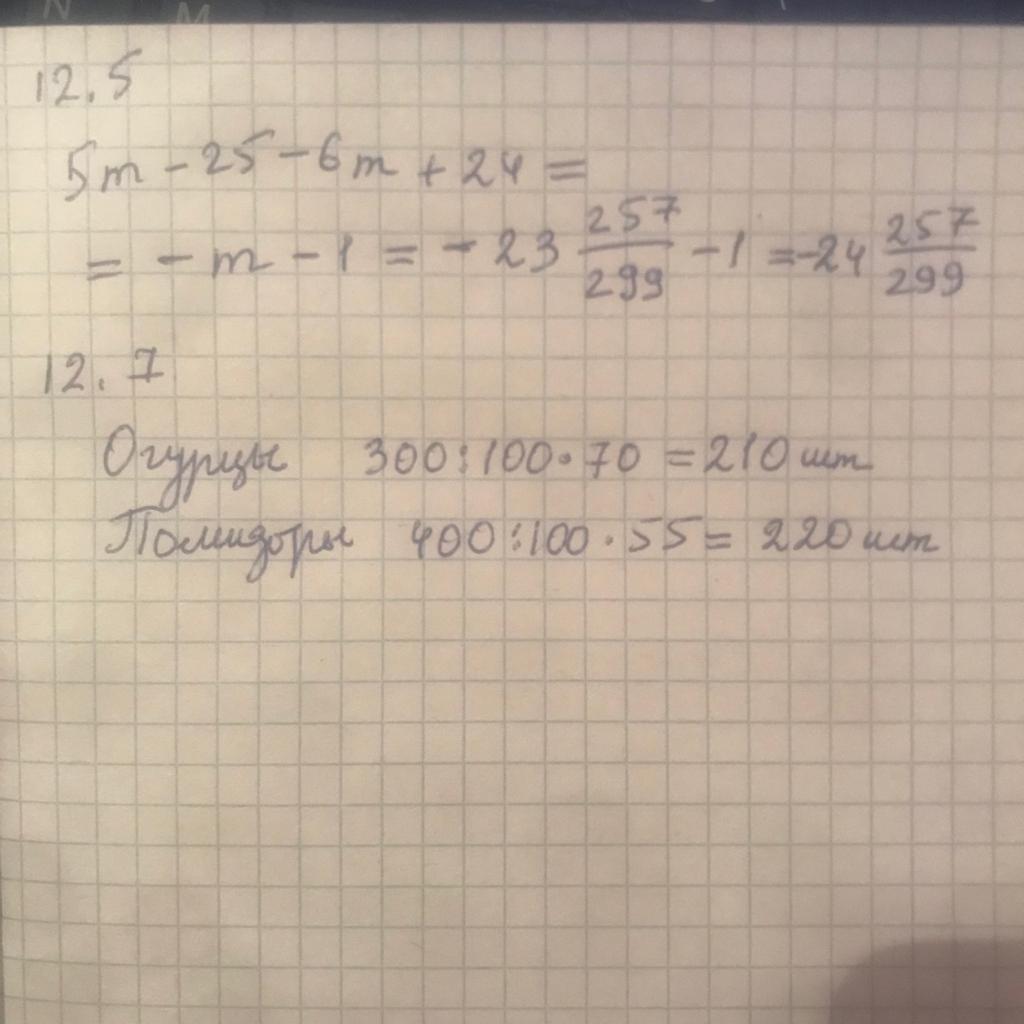 12.5
5m - 25 - 6m + 24 =
= - m - 1 = - 23 257/299 - 1 = -24 257/299
12.7
Огурцы 300:100·70 = 210 шт
Помидоры 400:100·55 = 220 шт